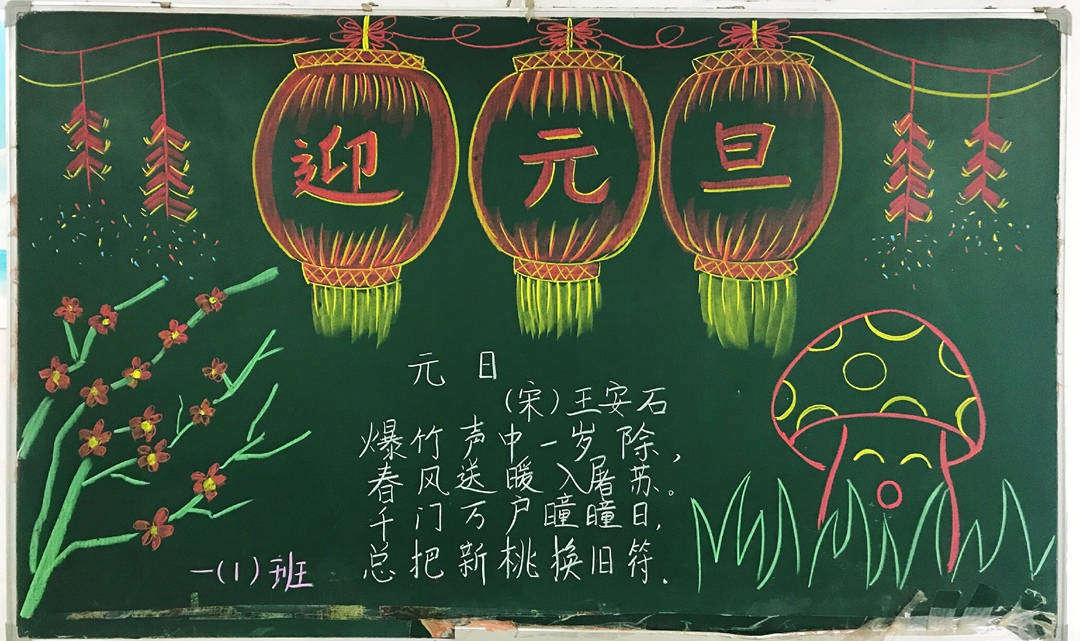 迎元旦
元日
(宋)王安石
爆竹声中一岁除,
春风送暖入屠苏。
千门万户曈曈日,
总把新桃换旧符.
一(1)班